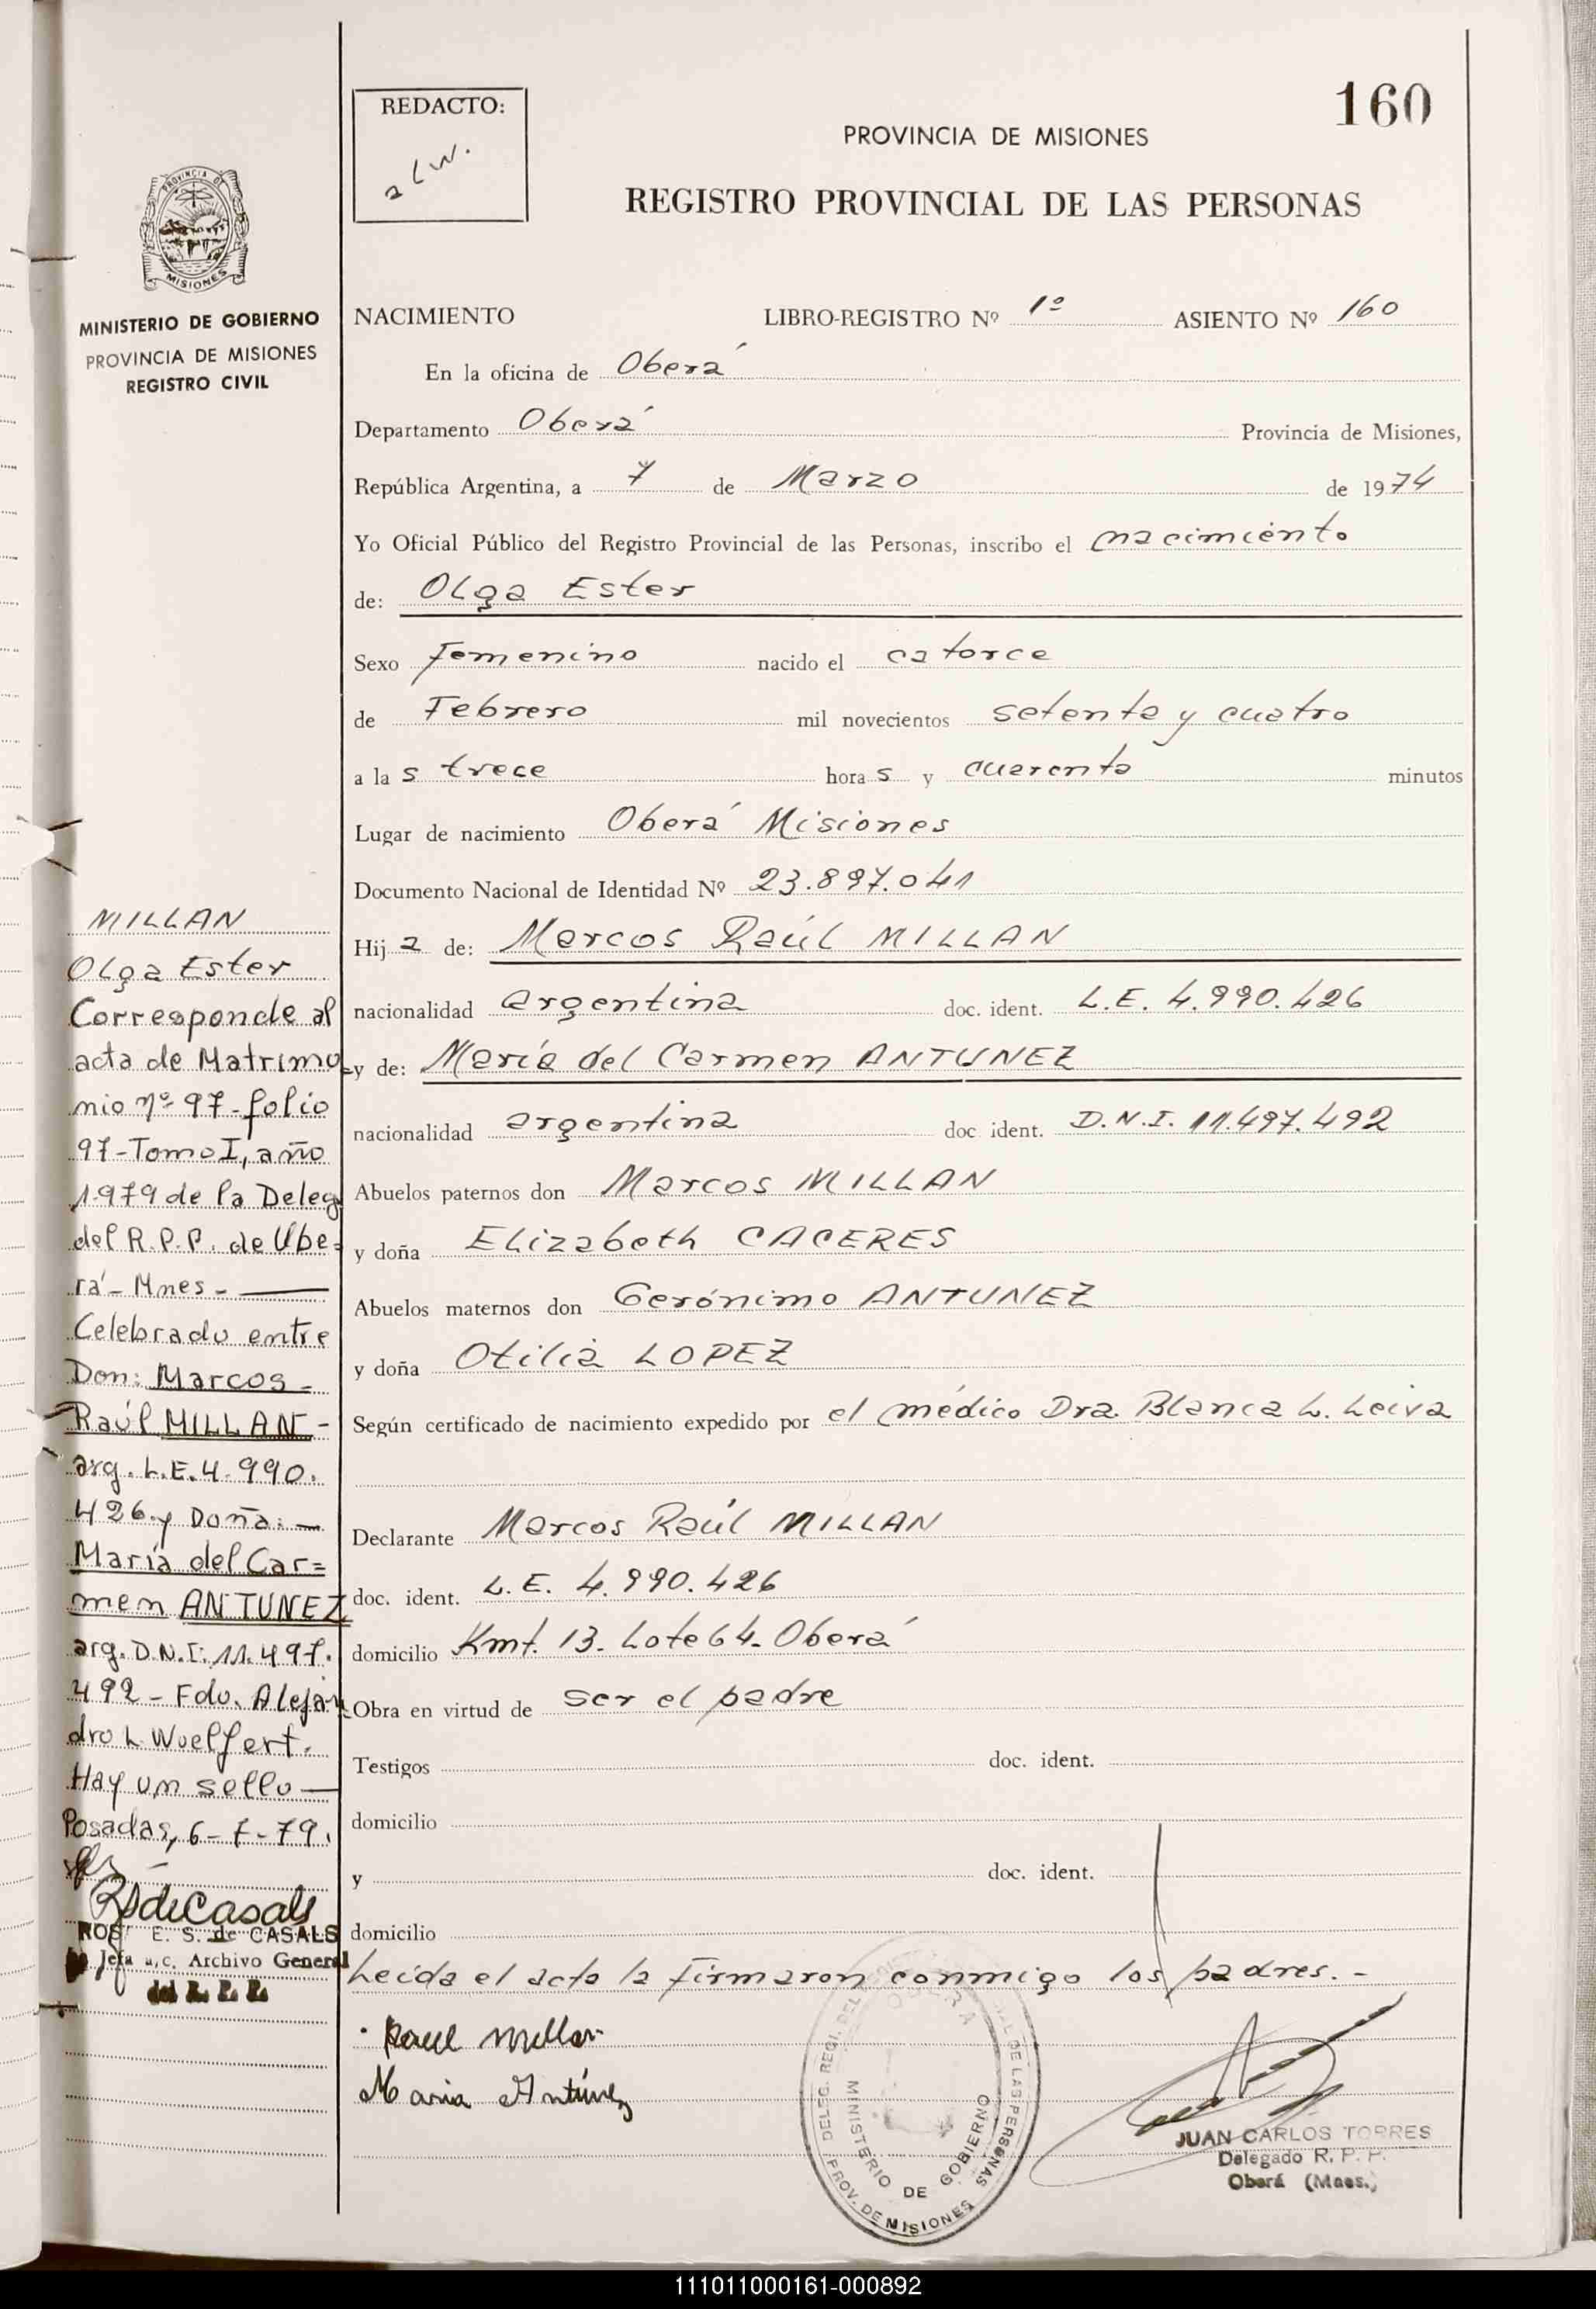 160
REDACTO:
a L W.
PROVINCIA DE MISIONES
REGISTRO PROVINCIAL DE LAS PERSONAS
PROVINCIA DE
MISIONES
MINISTERIO DE GOBIERNO
PROVINCIA DE MISIONES
REGISTRO CIVIL
NACIMIENTO LIBRO-REGISTRO Nº 1º ASIENTO Nº 160
En la oficina de Oberá
Departamento Oberá Provincia de Misiones,
República Argentina, a 7 de Marzo de 1974
Yo Oficial Público del Registro Provincial de las Personas, inscribo el nacimiento
de: Olga Ester
Sexo Femenino nacido el catorce
de Febrero mil novecientos setenta y cuatro
a las trece horas y cuarenta minutos
Lugar de nacimiento Oberá Misiones
Documento Nacional de Identidad Nº 23.897.041
Hija de: Marcos Raúl MILLAN
nacionalidad argentina doc. ident. L.E. 4.990.426
y de: María del Carmen ANTUNEZ
nacionalidad argentina doc ident. D.N.I. 11.497.492
Abuelos paternos don Marcos MILLAN
y doña Elizabeth CACERES
Abuelos maternos don Gerónimo ANTUNEZ
y doña Otilia LOPEZ
Según certificado de nacimiento expedido por el médico Dra. Blanca L. Leiva
Declarante Marcos Raúl MILLAN
doc. ident. L.E. 4.990.426
domicilio Kmt. 13. Lote 64. Oberá
Obra en virtud de ser el padre
Testigos doc. ident.
domicilio
y doc. ident.
domicilio
Leida el acta la firmaron conmigo los padres.-
Raul Millan
Maria Antúnez
JUAN CARLOS TORRES
Delegado R. P. P.
Oberá (Mnes.)
DELEG. REGI. DEL DE LAS PERSONAS
OBERA
MINISTERIO DE GOBIERNO
PROV. DE MISIONES
MILLAN
Olga Ester
Corresponde al
acta de Matrimo
nio nº 97-folio
97-Tomo I, año
1979 de la Deleg.
del R.P.P. de Obe=
rá - Mnes -
Celebrado entre
Don: Marcos -
Raúl MILLAN -
arg. L.E. 4.990.
426 y Doña: -
María del Car=
men ANTUNEZ
arg. D.N.I: 11.497.
492 - Fdo. Alejan
dro L. Woelfert.
Hay un sello
Posadas, 6-7-79.
RdeCasals
ROS E. S. de CASALS
Jefa a/c. Archivo General
del R. P. P.
111011000161-000892